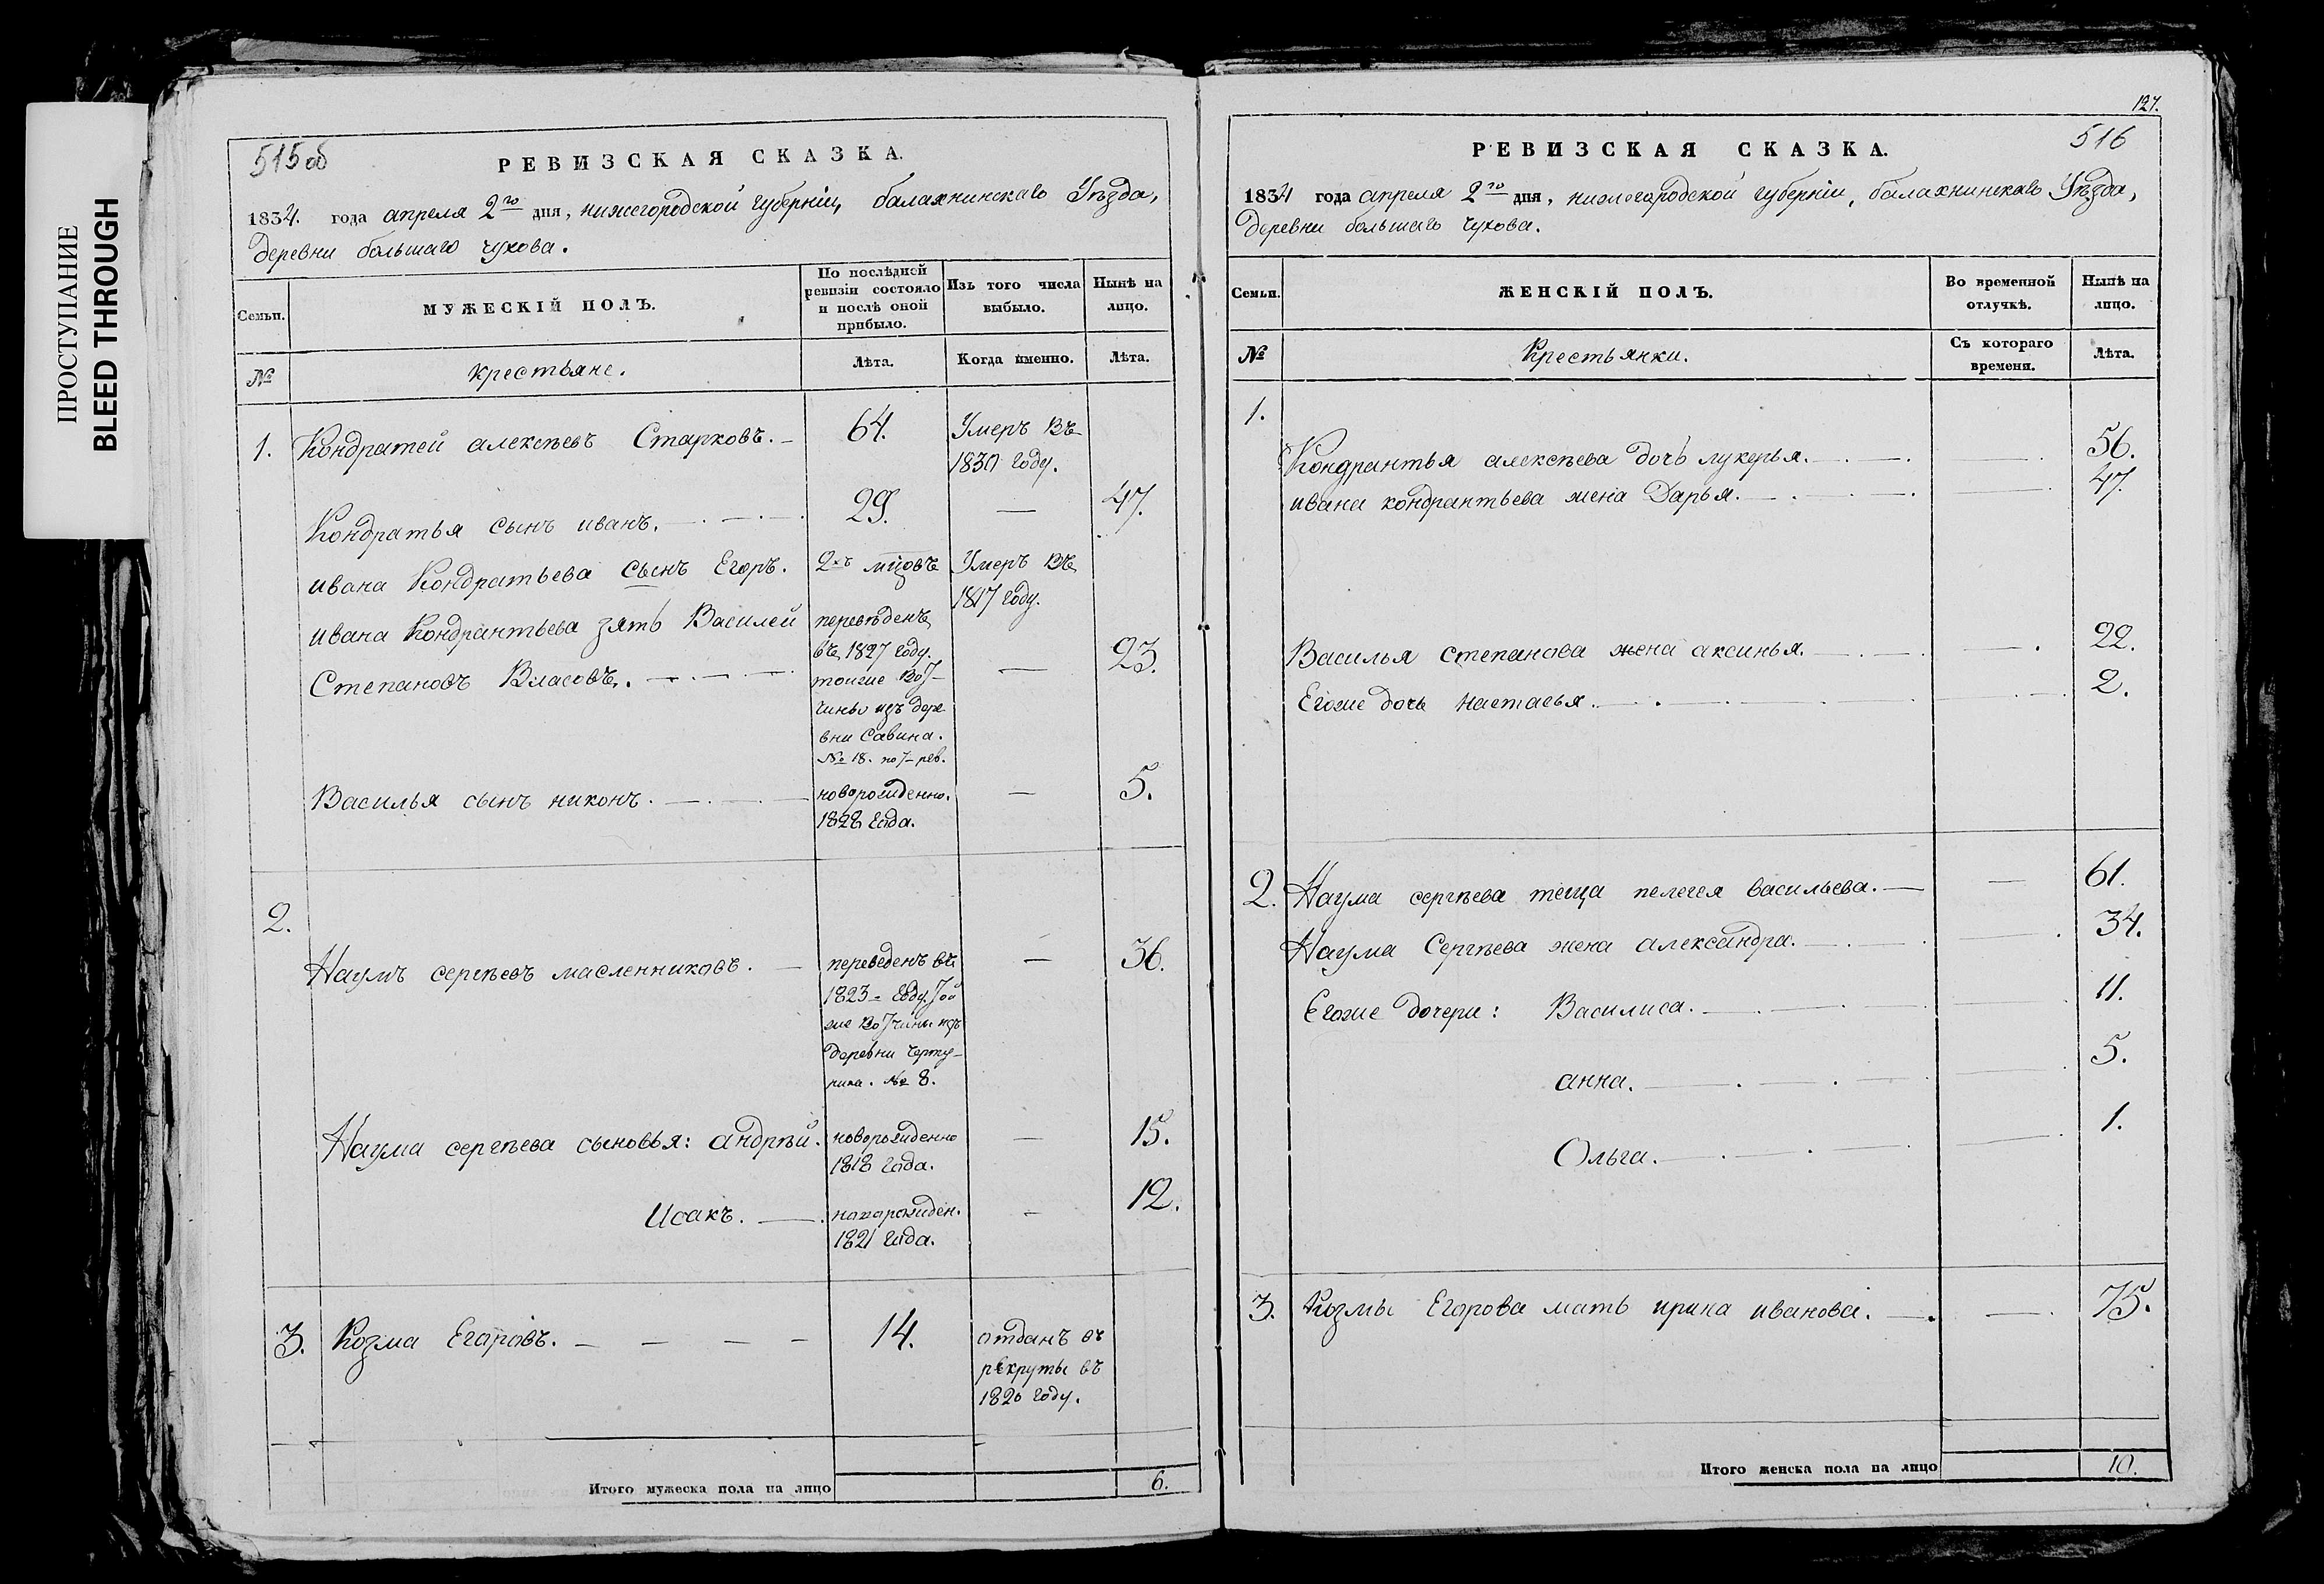 ПРОСТУПАНИЕ
BLEED THROUGH
515 об
РЕВИЗСКАЯ СКАЗКА.
1834. года апреля 2го дня, нижегородской губернiи, балахнинскаго Уѣзда,
деревни большаго чухова.
Семьи.
МУЖЕСКIЙ ПОЛЪ.
По послѣдней
ревизiи состояло
и послѣ оной
прибыло.
Изъ того числа
выбыло.
Нынѣ на
лицо.
№
крестьяне.
Лѣта.
Когда именно.
Лѣта.
1. Кондратей алексѣевъ Старковъ. 64. Умеръ Въ
1830 году.
Кондратья сынъ иванъ. 29. — 47.
ивана Кондратьева сынъ Егоръ. 2хъ мцовъ Умеръ Въ
1817 году.
ивана Кондрантьева зять Василей переведенъ
въ 1827 году.
Степановъ Власовъ. — 23.
тоиже Вот-
чины изъ дере-
вни Савина.
№ 18. по 7- рев.
Василья сынъ никонъ. новорожденно. — 5.
1828 года.
2.
Наумъ сергѣевъ масленниковъ. — переведенъ въ — 36.
1823 - году той
же Вотчины изъ
деревни
№ 8.
Наума сергѣева сыновья: андрѣй. новорожденно — 15.
1818 года.
Исакъ. новорожден. — 12.
1821 года.
3. Козма Егоровъ. 14. отданъ въ
рекруты въ
1820 году.
Итого мужеска пола на лицо 6.
127.
516
РЕВИЗСКАЯ СКАЗКА.
1834 года апреля 2го дня, нижегородской губернiи, балахнинскаго Уѣзда,
деревни большаго чухова.
Семьи.
ЖЕНСКIЙ ПОЛЪ.
Во временной
отлучкѣ.
Нынѣ на
лицо.
№
Крестьянки.
Съ котораго
времени.
Лѣта.
1.
Кондрантья алексѣева дочь лукерья. — 56.
ивана кондрантьева жена Дарья. — 47.
Василья степанова жена аксинья. — 22.
Егоже дочь настасья. — 2.
2. Наума сергѣева теща пелегея васильева. — 61.
Наума Сергѣева жена александра. — 34.
Егоже дочери: Василиса. — 11.
анна. — 5.
Ольга. — 1.
3. Козмы Егорова мать ирина иванова. — 75.
Итого женска пола на лицо 10.